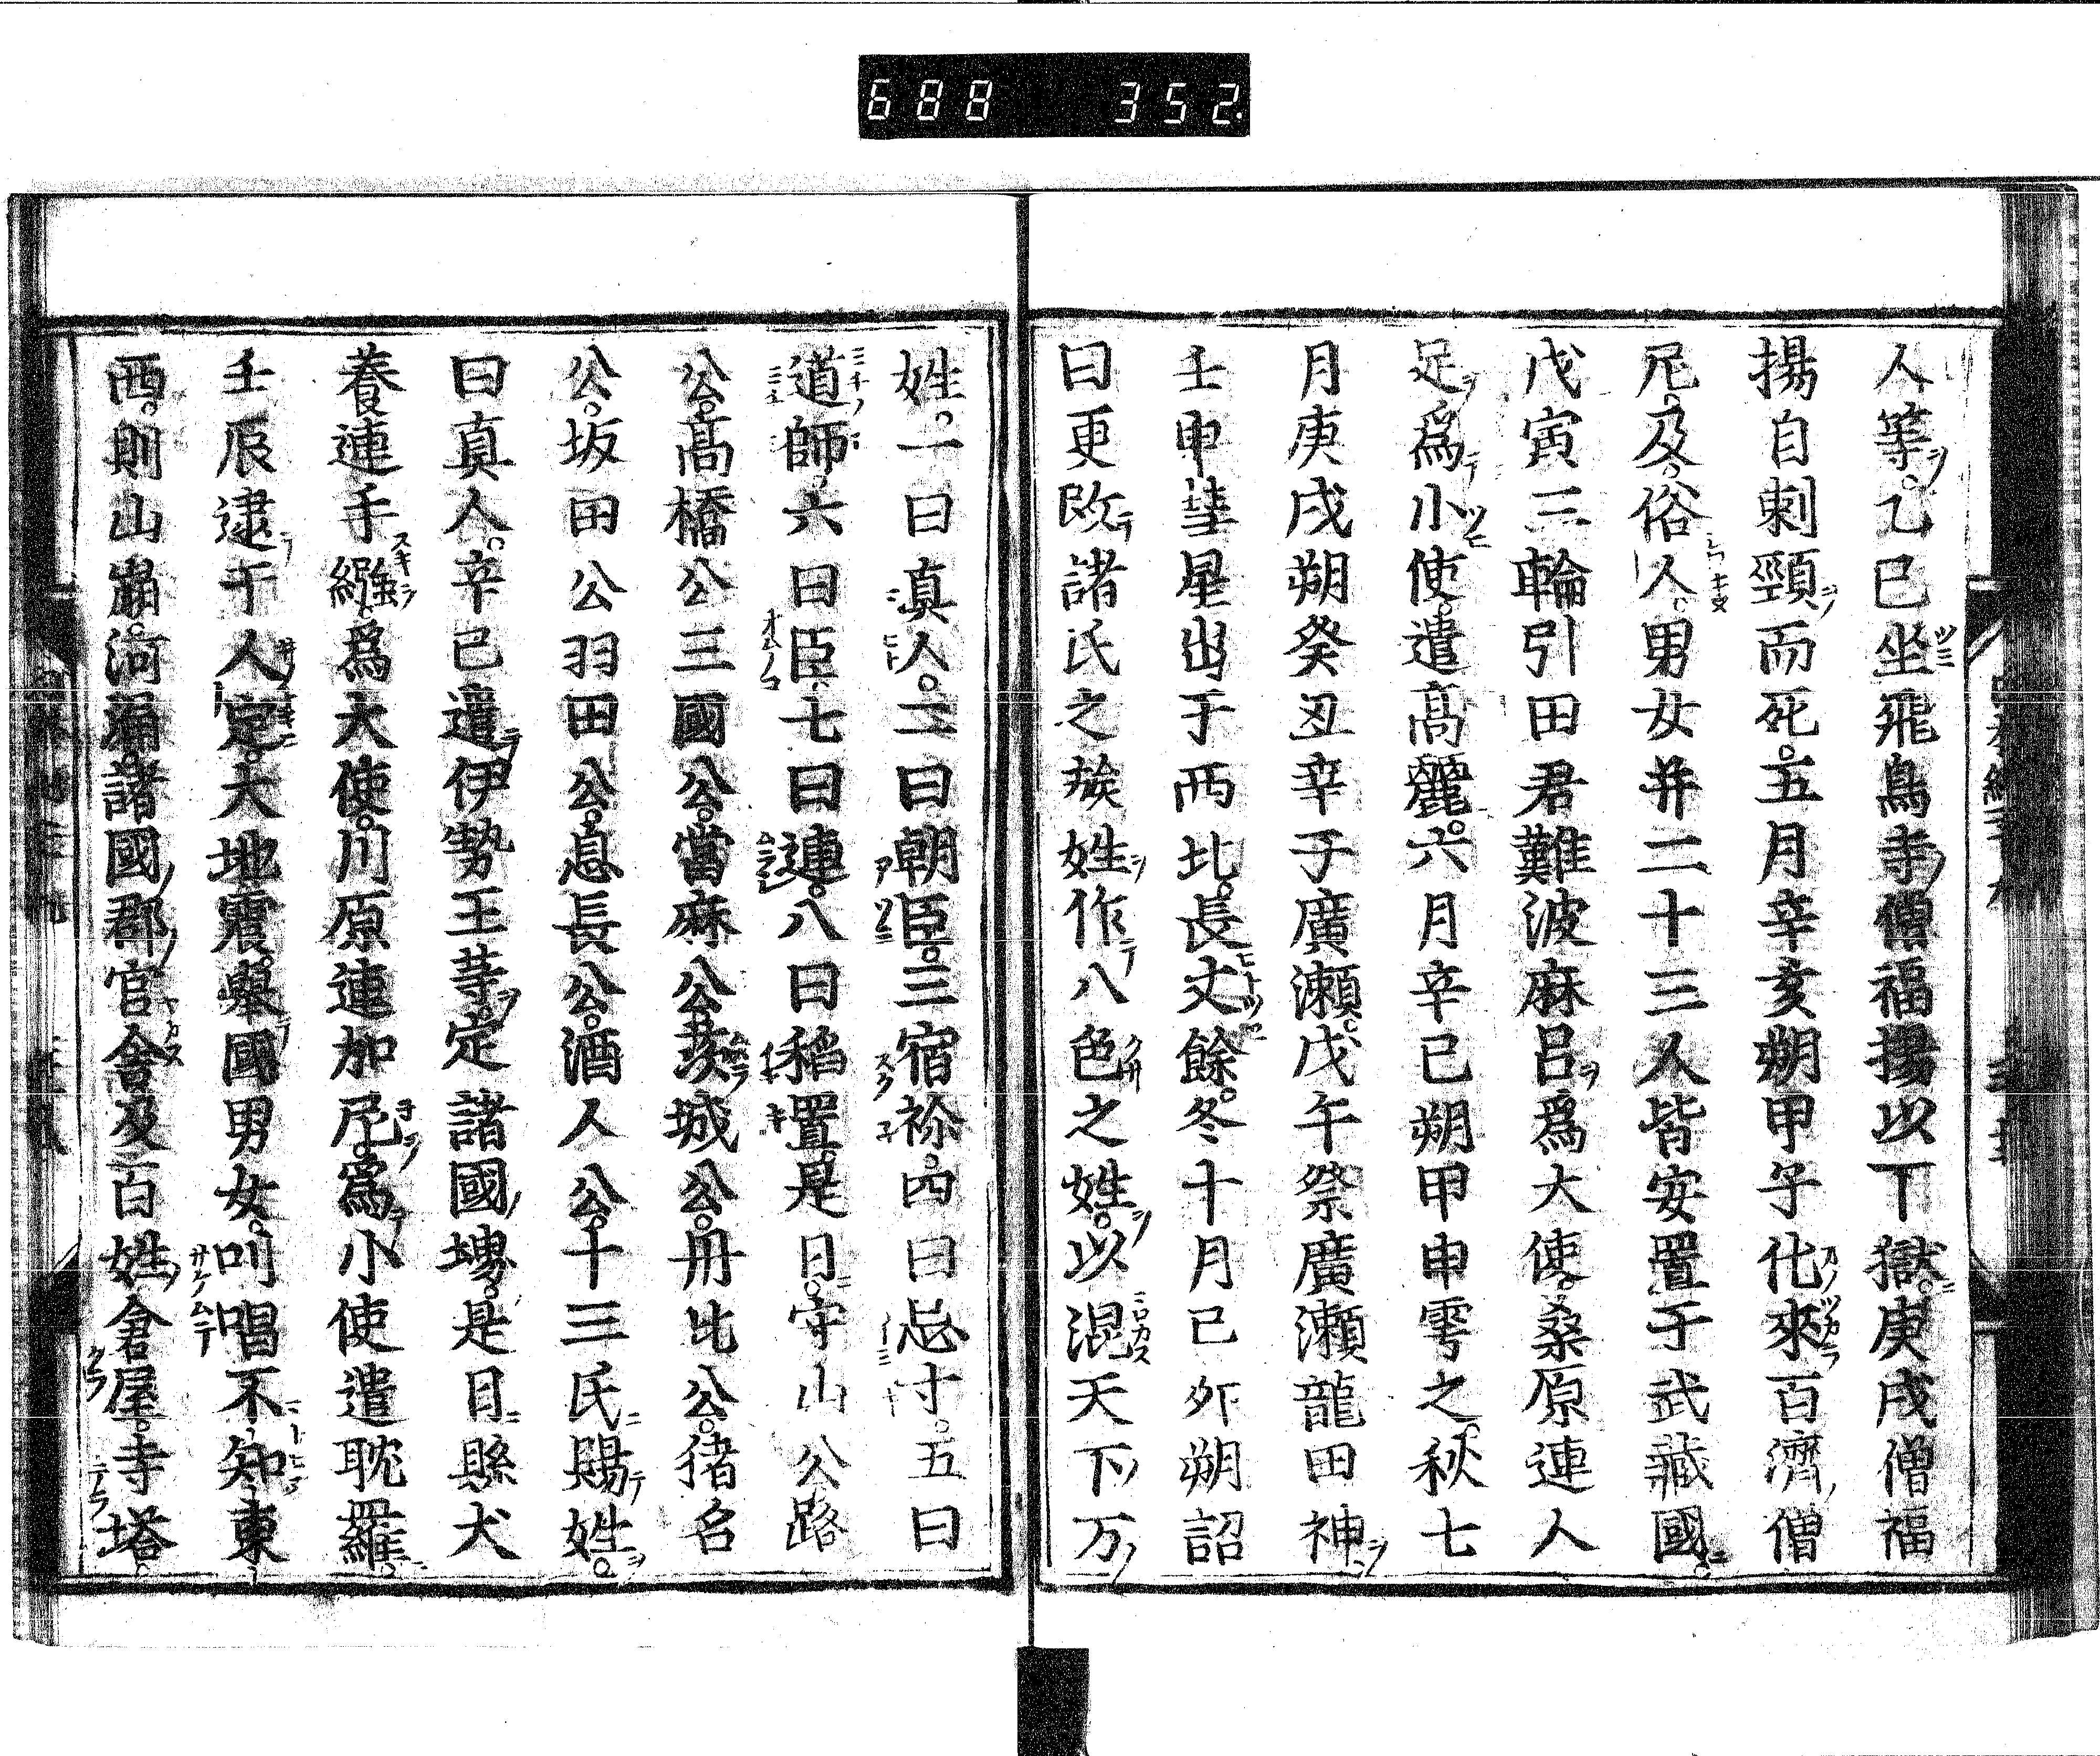 688 352
人等乙巳坐飛鳥寺僧福揚以下獄庚戌僧福
揚自刺頸而死五月辛亥朔甲子化來百濟僧
尼及俗人男女并二十三人皆安置于武藏國
戊寅三輪引田君難波麻呂爲大使桑原連人
足爲小使遣高麗六月辛巳朔甲申雩之秋七
月庚戌朔癸丑辛子廣瀬戊午祭廣瀬龍田神
壬申彗星出于西北長丈餘冬十月己夘朔詔
曰更改諸氏之族姓作八色之姓以混天下万
姓一曰真人二曰朝臣三宿祢四曰忌寸五曰
道師六曰臣七曰連八曰稻置是日守山公路
公高橋公三國公當麻公茨城公丹比公猪名
公坂田公羽田公息長公酒人公十三氏賜姓
曰真人辛巳遣伊勢王等定諸國堺是日縣犬
養連手繦爲大使川原連加尼爲小使遣耽羅
壬辰逮于人定大地震舉國男女叫唱不知東
西則山崩河涌諸國郡官舍及百姓倉屋寺塔